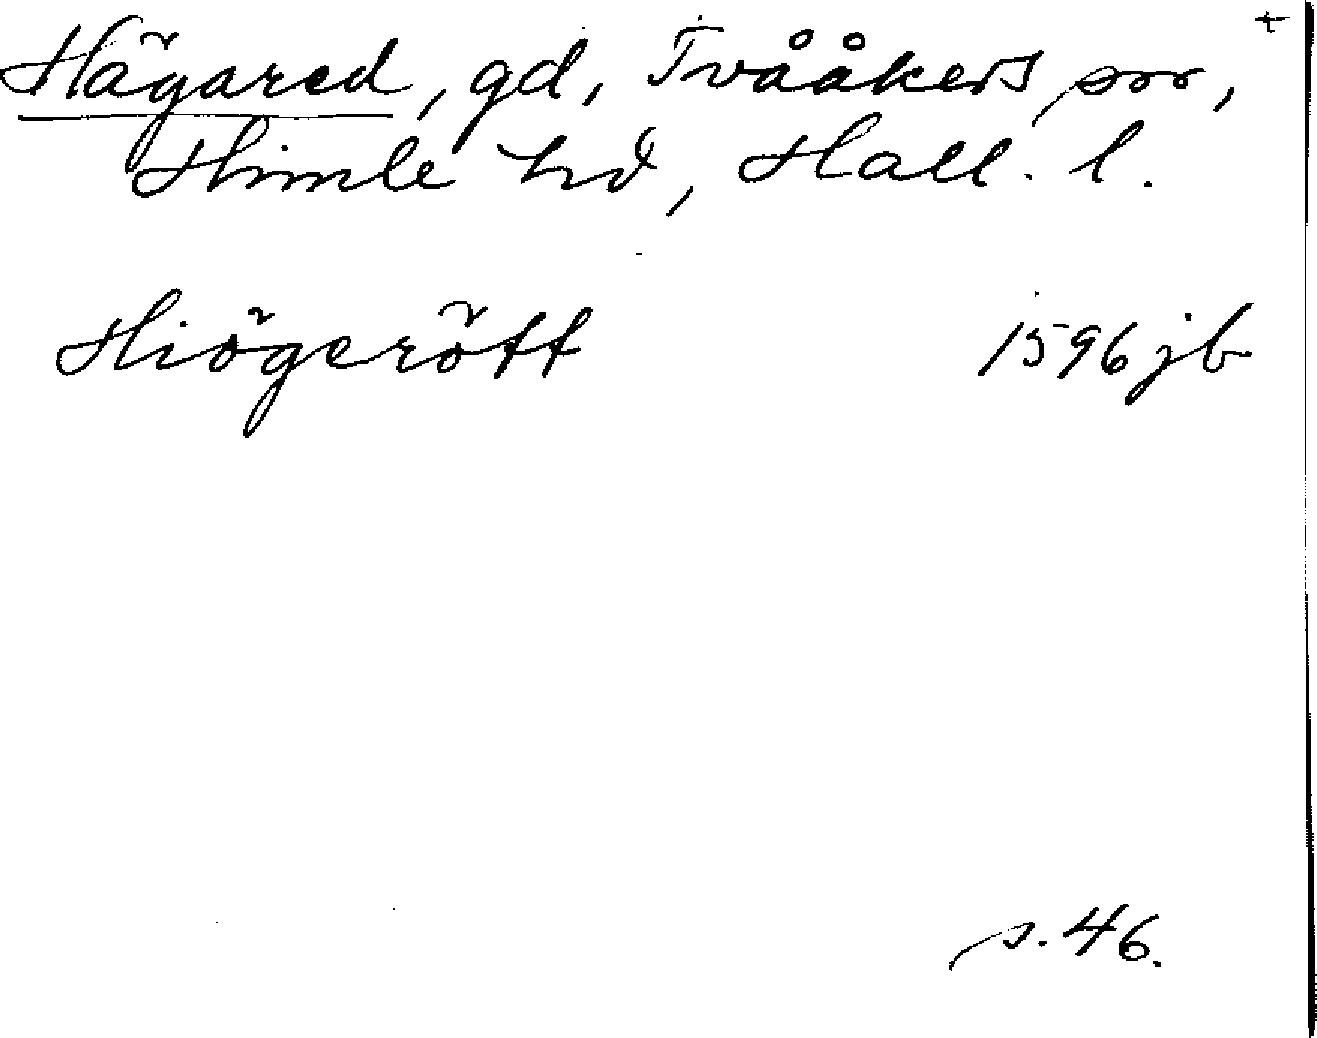 Hägared, gd, Tvååkers sn,
Himle hd, Hall. l.
Hiögerött 1596 jb
s. 46.